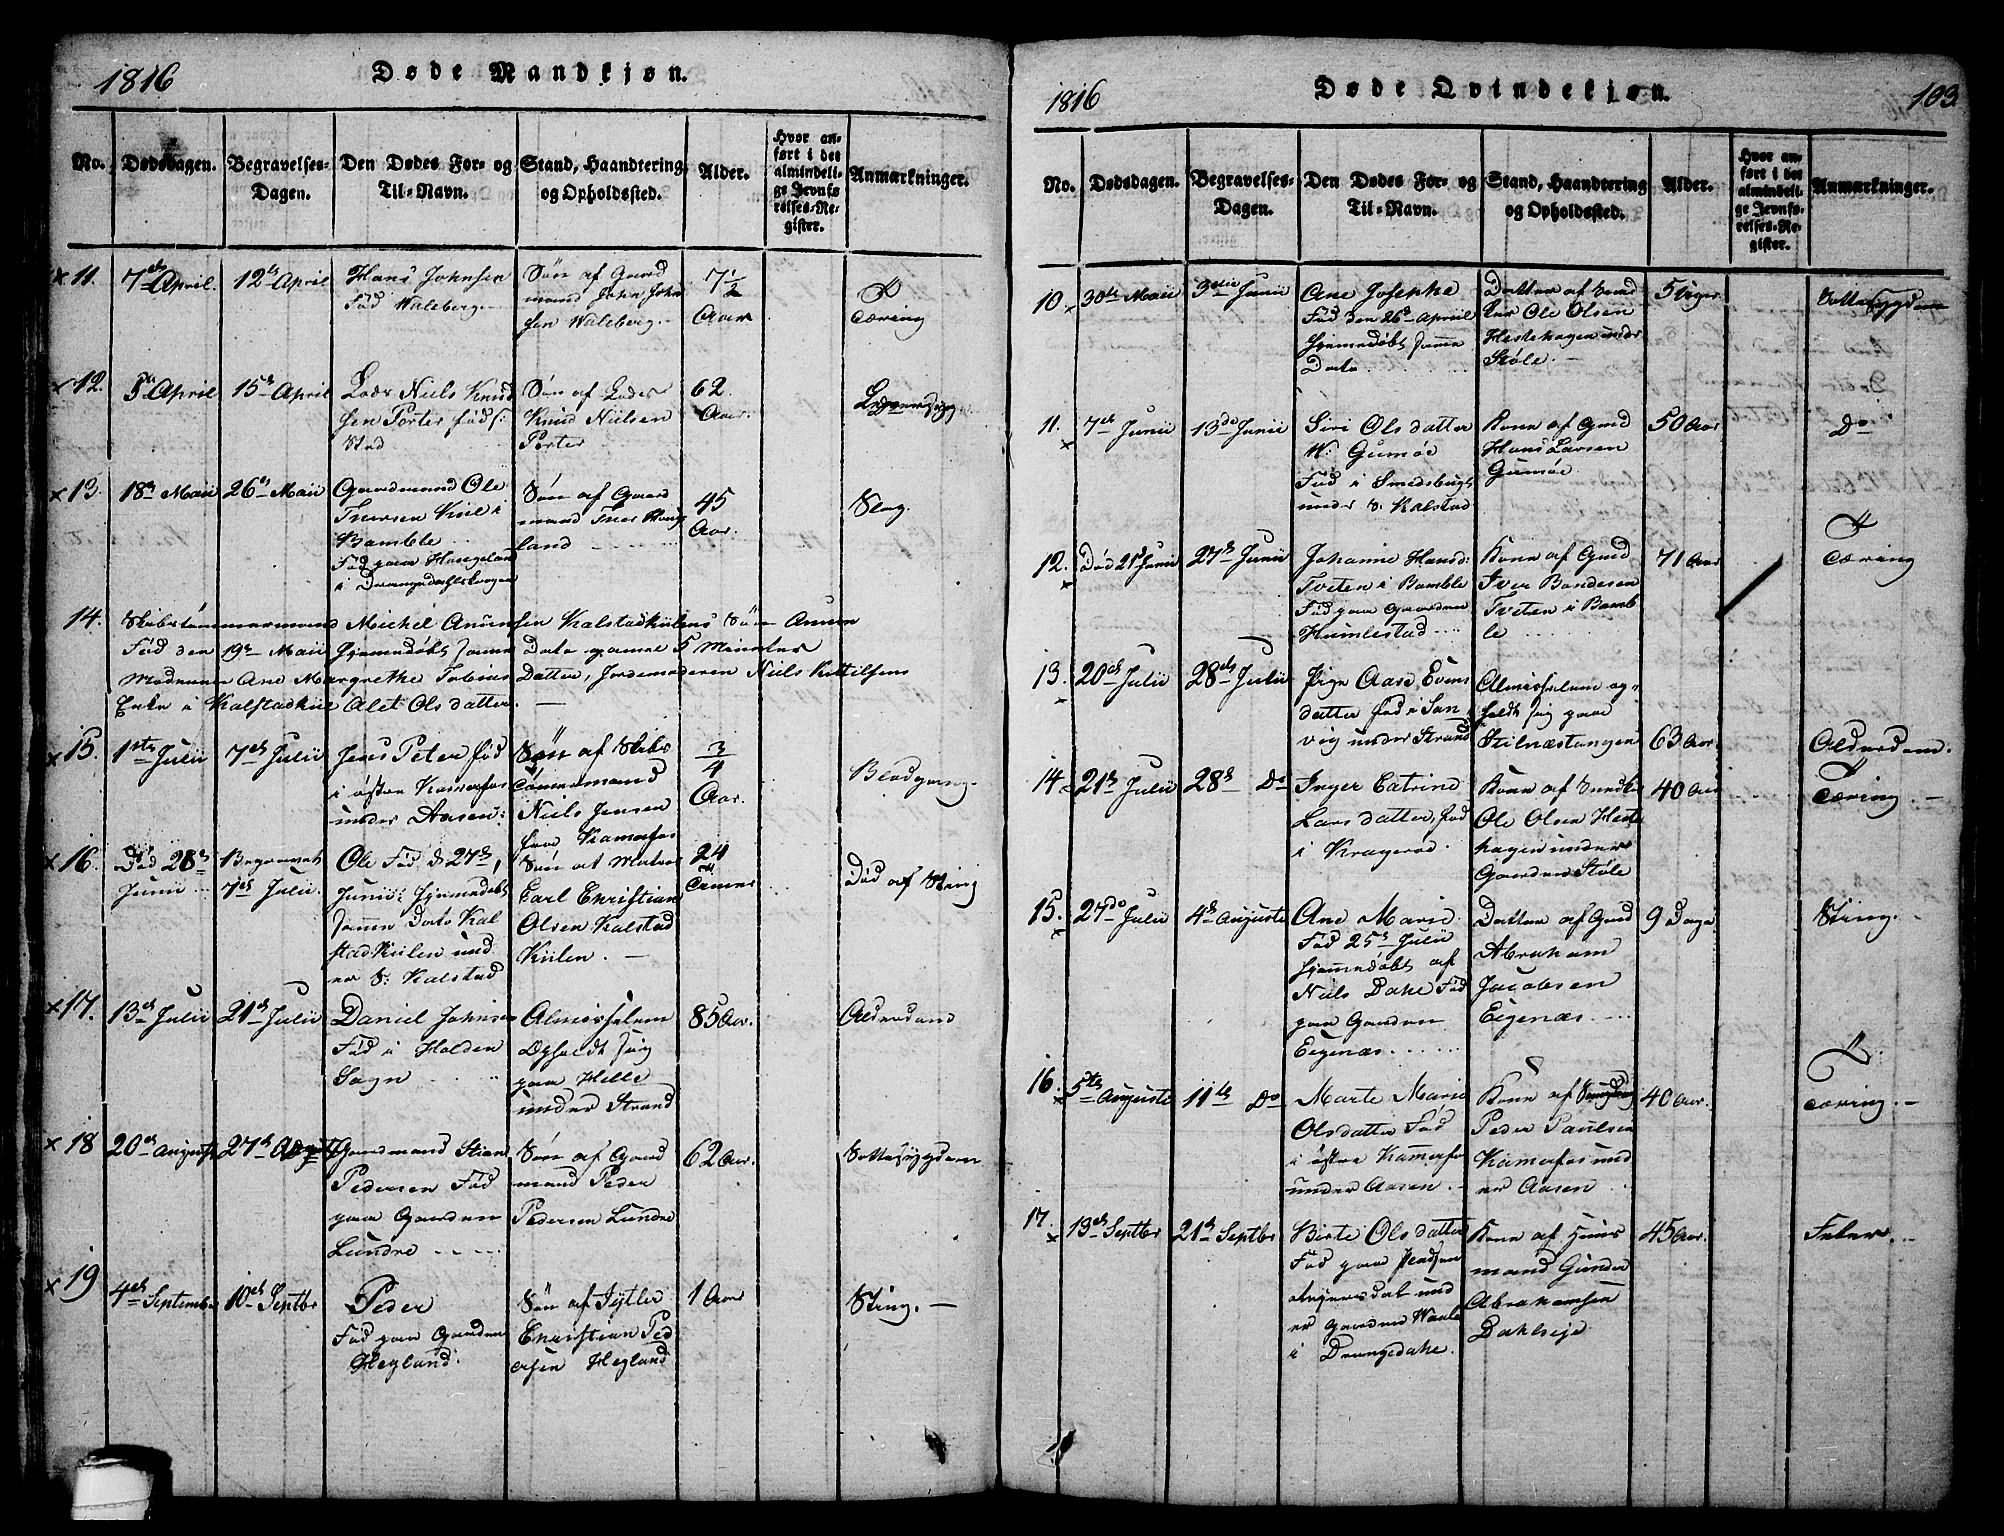 1816
Døde Mandkjøn.
No.
Dødsdagen.
Begravelses-
Dagen.
Den Dødes For- og
Til-Navn.
Stand, Haandtering
og Opholdssted.
Alder.
Hvor an-
ført i det
almindeli-
ge Jevnfø-
relses-Re-
gister.
Anmærkninger.
x 11. 7de April. 12te April
Hans Johnsen
Fød Waleberg.
Søn af Gaard
mand John John
sen Waleberg.
7 1/2
Aar
Tæring
x 12. April 15de April
Niels Knud
sen Porter fød
Søn af Lods
Knud Nielsen
Porter
62
Aar.
x 13. 18de Maii 26de Maii
Gaardmand Ole
Kiil i
Bamble
Fød paa
i Drangedahls
Søn af Gaard
mand
land
45
Aar.
Slag.
14. Skibstømmermand Michel Anunsen Kalstadkiilens Søn Anun
Fød den 19de Maii hjemmedøbt samme Dato gamel 5 Minuter
Modreren Ane Margrethe Tobias Datter, Jordemoderen Niels Kittilsens
Enke i Kalstadkiil Alet Olsdatter.
x 15. 1ste Julii 7de Julii
Jens Peter fød
i østre Kamerfos
under Aasen
Søn af Skibs
tømmermand
Niels Jensen
Kamerfos
3/4
Aar.
Blodgang.
x 16. Død 28de
Junii
Begravet
7de Julii.
Ole Fød d 27de
Junii hjemmedøbt
samme Dato Kal
stadkiilen und
er S: Kalstad
Søn af Matros
Carl Christian
Olsen Kalstad
Kiilen.
24
Timer
Død af Sting
x 17. 13de Julii 21de Julii
Daniel Johnsen
Fød i Holden
Sogn
Almisselem
Opholdt sig
paa Helle
under Strand
85 Aar.
Alderdom
x 18 20de August 27de August
Gaardmand Stian
Pedersen Fød
paa Gaarden
Lundre
Søn af Gaard
mand Peder
Pedersen Lundre
62 Aar.
Sottesygdom
x 19 4de September 10de Septbr
Peder
Fød paa Gaarden
Hegland.
Søn af
Christian Ped
ersen Hegland
1 Aar
Sting.
1816
Døde Qvindekjøn.
103.
No.
Dødsdagen.
Begravelses-
Dagen.
Den Dødes For- og
Til-Navn.
Stand, Haandtering
og Opholdssted.
Alder.
Hvor an-
ført i det
almindeli-
ge Jevnfø-
relses-Re-
gister.
Anmærkninger.
10. x 30te Maii 3die Junii
Ane Josephe
Fød den 26de Apriil
hjemmedøbt samme
Dato
Datter af
Ole Olsen
Hestehagen under
Støle.
5 Uger
Sottesygdom
11. x 7de Junii 13de Junii
Siri Olsdatter
Gumøe
Fød i Smedsbugt
under S. Kalstad
Kone af Gmd
Hans Larsen
Gumøe.
50 Aar
Do
12. x Død 21de Junii 27de Junii
Johanne Hansd:
Tveten i Bamble
Fød paa Gaarden
Humlestad
Kone af Gmd
Iver Bondesen
Tveten i Bamb
le
71 Aar
Tæring
13. x 20de Julii 28de Julii
Pige Aase Evens
datter fød i San
vig under Strand
Almisselem op-
holdt sig paa
Stilnæstangen
63 Aar.
Alderdom.
14. x 21de Julii 28de Do
Inger Catrine
Lars datter, fød
i Kragerøe
Kone af
Ole Olsen Heste
hagen under
Gaarden Støle
40 Aar
Tæring.
15. x 27de Julii 4de Auguste
Ane Marie
Fød 25de Julii
hjemmedøbt af
Niels Dahe Fød
paa Gaarden
Eigenæs.
Datter af Gmd
Abraham
Jacobsen
Eigenæs.
9 Dage
Sting.
16. x 5te Auguste 11te Do
Marte Marie
Olsdatter Fød
i østre Kamerfos
under Aasen.
Kone af
Peder Paulsen
Kamerfos und
er Aasen
40 Aar.
Tæring.
17. x 13de Septbr 21de Septbr
Birte Olsdatter
Fød paa
und
er Gaarden
i Drangedahl.
Kone af Huus
mand Gunder
Abrahamsen
Dahlseje
45 Aar.
Feber.